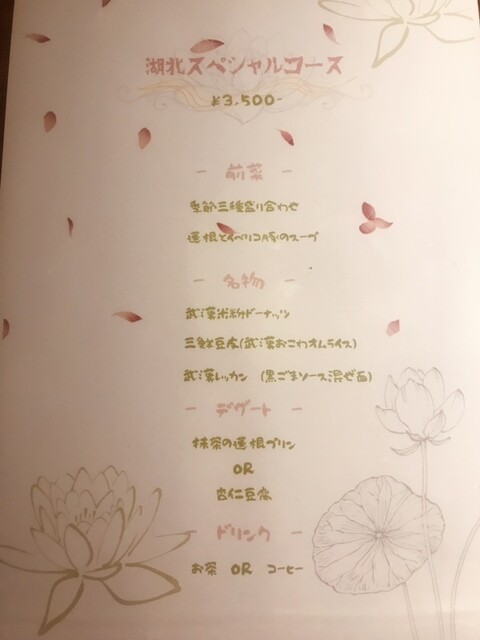 湖北スペシャルコース
¥3,500-
- 前菜 -
季節三種盛り合わせ
蓮根とイベリコ豚のスープ
- 名物 -
武漢米粉ドーナッツ
三鮮豆皮(武漢おこわオムライス)
武漢レッカン (黒ごまソース混ぜ面)
- デザート -
抹茶の蓮根プリン
OR
杏仁豆腐
- ドリンク -
お茶 OR コーヒー